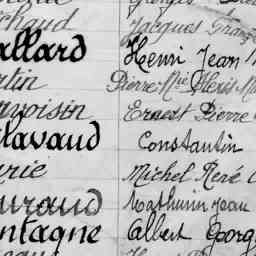 Jacques Franç
allard Henri Jean
rtin Pierre Mie Alexis M
rvoisin Ernest Pierre
clavaud Constantin
urie Michel René
uraud Mathurin Jean
ontagne Albert Georg